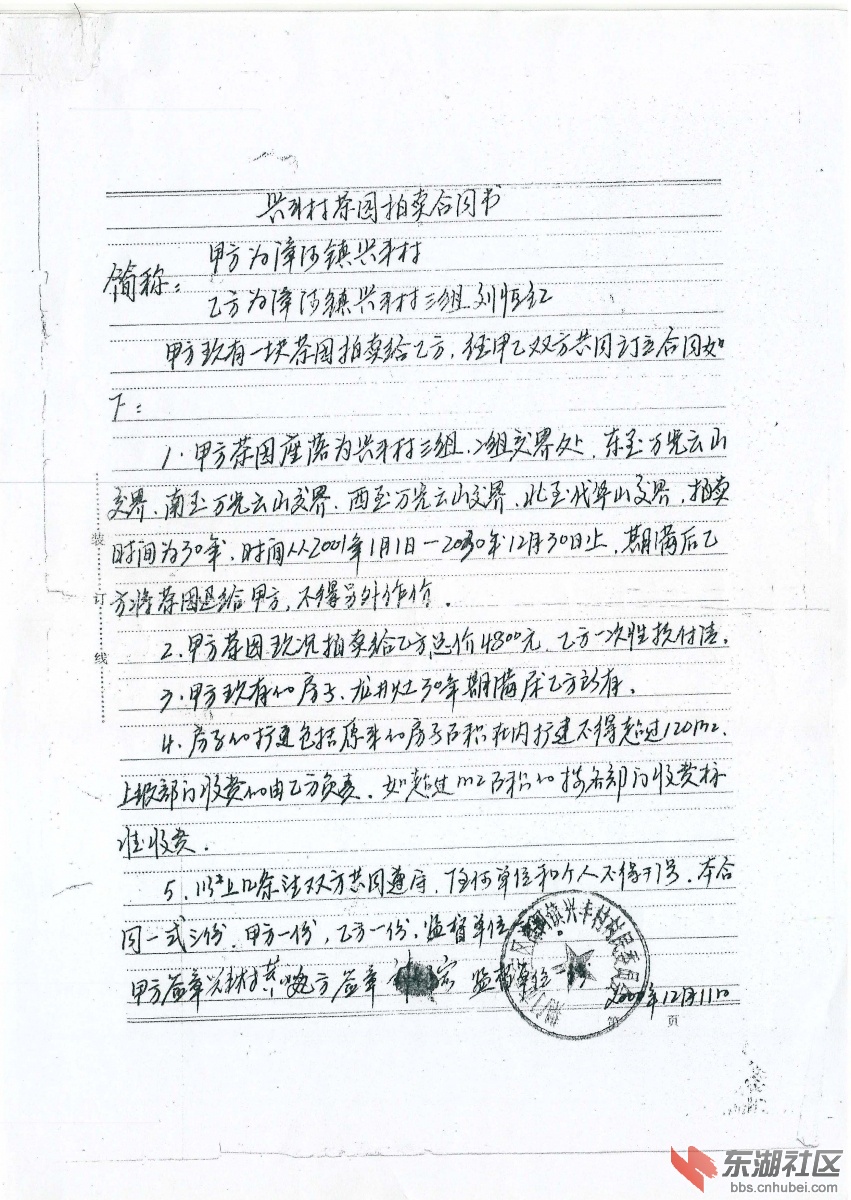 兴丰村茶园拍卖合同书
甲方为漳河镇兴丰村
简称：
乙方为漳河镇兴丰村三组 刘恒红
甲方现有一块茶园拍卖给乙方，经甲乙双方共同订立合同如
下：
1．甲方茶园座落为兴丰村三组、2组交界处，东至万先云山
交界，南至万先云山交界，西至万先云山交界，北至代华山交界，拍卖
时间为30年，时间从2001年1月1日—2030年12月30日止，期满后乙
方将茶园退给甲方，不得另外作价．
2．甲方茶园现况拍卖给乙方总价4800元，乙方一次性款付清．
3．甲方现有的房子、龙井灶30年期满后乙方所有．
4．房子的扩建包括原来的房子面积在内扩建不得超过120m2．
上级部门收费的由乙方负责，如超过m2面积的按各部门收费标
准收费．
5．以上几条法双方共同遵守，任何单位和个人不得干涉．本合
同一式三份，甲方一份，乙方一份，监督单位
甲方盖章 兴丰村 乙方盖章 监督单位
镇兴丰村村民委员会
年12月11日
第 页
装
订
线
东湖社区
bbs.cnhubei.com